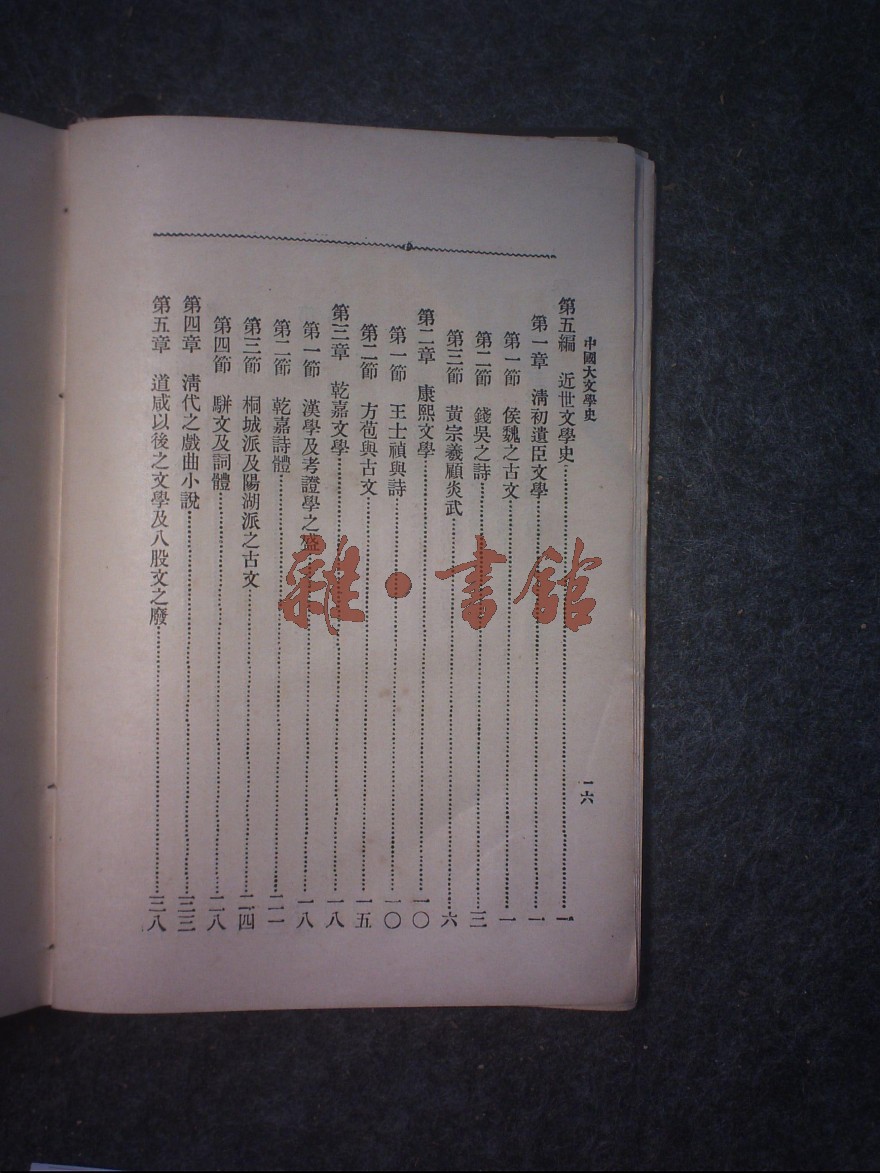 中國大文學史
一六
第五編 近世文學史 一
第一章 淸初遺臣文學 一
第一節 侯魏之古文 一
第二節 錢吳之詩 三
第三節 黃宗羲顧炎武 六
第二章 康熙文學 一〇
第一節 王士禎與詩 一〇
第二節 方苞與古文 一五
第三章 乾嘉文學 一八
第一節 漢學及考證學之盛 一八
第二節 乾嘉詩體 二一
第三節 桐城派及陽湖派之古文 二四
第四節 駢文及詞體 二八
第四章 淸代之戲曲小說 三三
第五章 道咸以後之文學及八股文之廢 三八
雜·書館